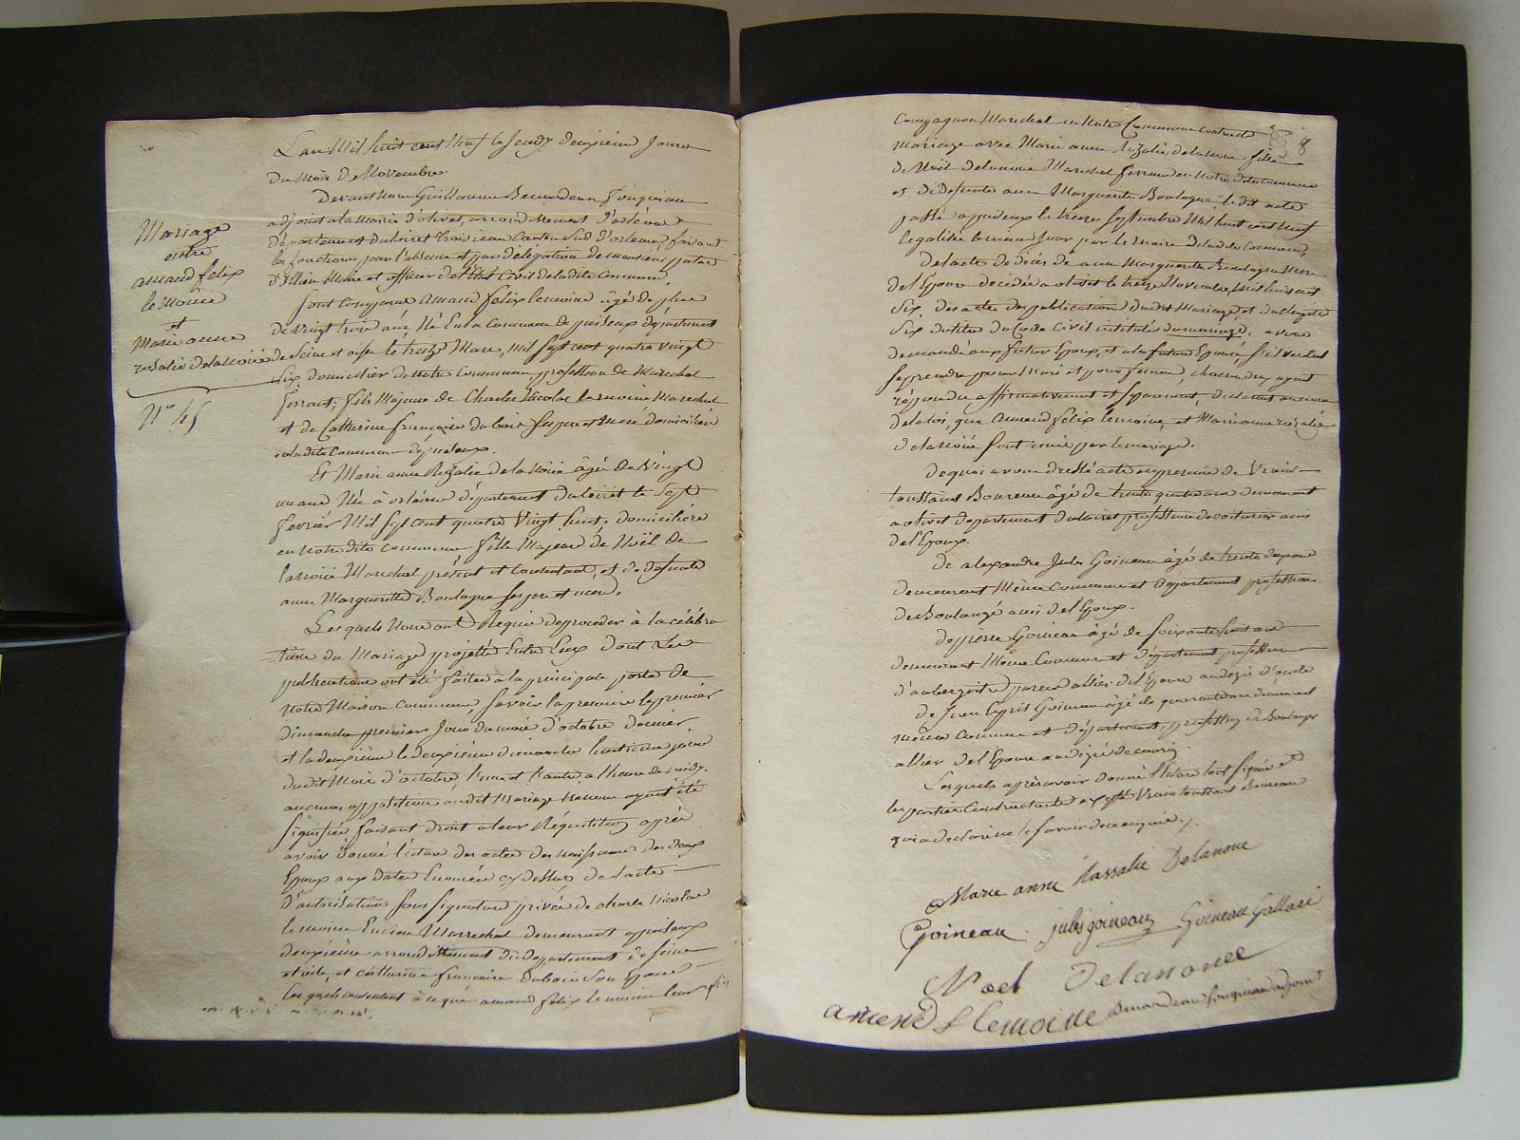 L'an Mil huit cent Neuf le Jeudy deuxieme Jour
Du Mois De Novembre
Devant Nous Guillaume
adjoint a la Mairie d'olivet, arrondissement d'orléans
Département du loiret troisieme Canton Sud D'orléans, faisant
les fonctions, par l'absence et par délégation de monsieur
Maire et officier de l'état Civil de la dite Commune
Mariage
entre
amand félix
le Moine
et
Marie anne
rosalie delanoüe
N° 45
sont comparus Amand félix lemoine âgé de plus
de vingt trois ans, Né En la Commune de puiseux département
de Seine et oise le treize Mars, Mil sept cent quatre vingt
Six domicilier de Notre Commune, profession de Marechal
ferrant, fils Majeur de Charles Nicolas Lemoine Marechal
et de Catherine françoise dubois ses pere et Mere domiciliés
en la dite Commune de puiseux.
Et Marie anne Rozalie de la Noüe âgé De Vingt
un ans Née à orléans département du loiret le Sept
fevrier Mil Sept cent quatre Vingt huit, domiciliée
en notre dite Commune fille Majeure de Noël de
lanoüe Marechal présent et Consentant, et de defunte
anne Margueritte Boulogne ses pere et mere.
Lesquels Nous ont Requis de proceder à la célébra
tion du Mariage projetté Entre Eux dont les
publications ont été faites a la principale porte de
notre Maison Commune, Savoir la premiere le premier
dimanche premier Jour du mois d'octobre dernier
et la deuxième le deuxième dimanche huitieme jour
dudit Mois d'octobre, l'une et l'autre a l'heure de midy.
aucune opposition audit Mariage ne nous ayant été
signifiée faisant droit a leur Réquisition, après
avoir donné lecture des actes de naissance des deux
Epoux aux dates Enoncées cy dessus de l'acte
D'autorisation sous signature privée de charle nicolas
le moine Marrechal demeurant a puiseux
deuxieme arrondissement du departement de seine
et oise, et catherine françoise Dubois son Epouse
lesquels consentent à ce que amand félix le moine leur fils
8
Compagnon Marechal en Notre Commune contracte
mariage avec Marie anne Rozalie delanoüe fille
de Noël delanoüe Marechal ferrant en Notre dite Commune
et de defunte anne Marguerite Boulogne le dit acte
passé a puiseux le treize septembre Mil huit cent neuf
legalisé le même Jour par le Maire de la dite Commune
De l'acte de décès de anne Marguerite Boulogne Mere
de l'Epouse decédée a olivet le treize Novembre, Mil huit cent
Six, des actes de publication dudit Mariage, et du chapitre
Six du titre du Code Civil intitulés du mariage, avons
demandé aux futur Epoux, et a la future Epouse, s'ils veulent
se prendre pour Mari et pour femme, chacun deux ayant
répondu affirmativement et separément, declarons au nom
De la loi, que Amand félix lemoine, et Marie anne rozalie
delanoüe sont unis par le mariage.
De quoi avons dressé acte en presence de Vrain
toussaint Boureau âgé de trente quatre ans demeurant
a olivet departement du loiret profession de voiturier ami
de l'Epoux.
De alexandre Jules Goineau âgé de trente
demeurant Même Commune et Département profession
de Boulangé ami de l'Epoux.
De pierre Goineau âgé de soixante huit ans
demeurant Même Commune et Département profession
d'aubergiste parent allier de l'Epouse au degré d'oncle
De Jean Esprit Goineau âgé de quarante ans demeurant
même Commune et Département, profession de Boulanger
allier de l'Epouse au degré de cousin.
Lesquels après avoir Donné lecture ont signés et
les parties Contractantes excepté Vrain toussaint Boureau
qui a declaré ne le savoir de ce enquis.
Marie anne Rassalie Delanoue
Goineau jules goineau Goineau Gallard
Noel Delanouee
amend f lemoine adjoint